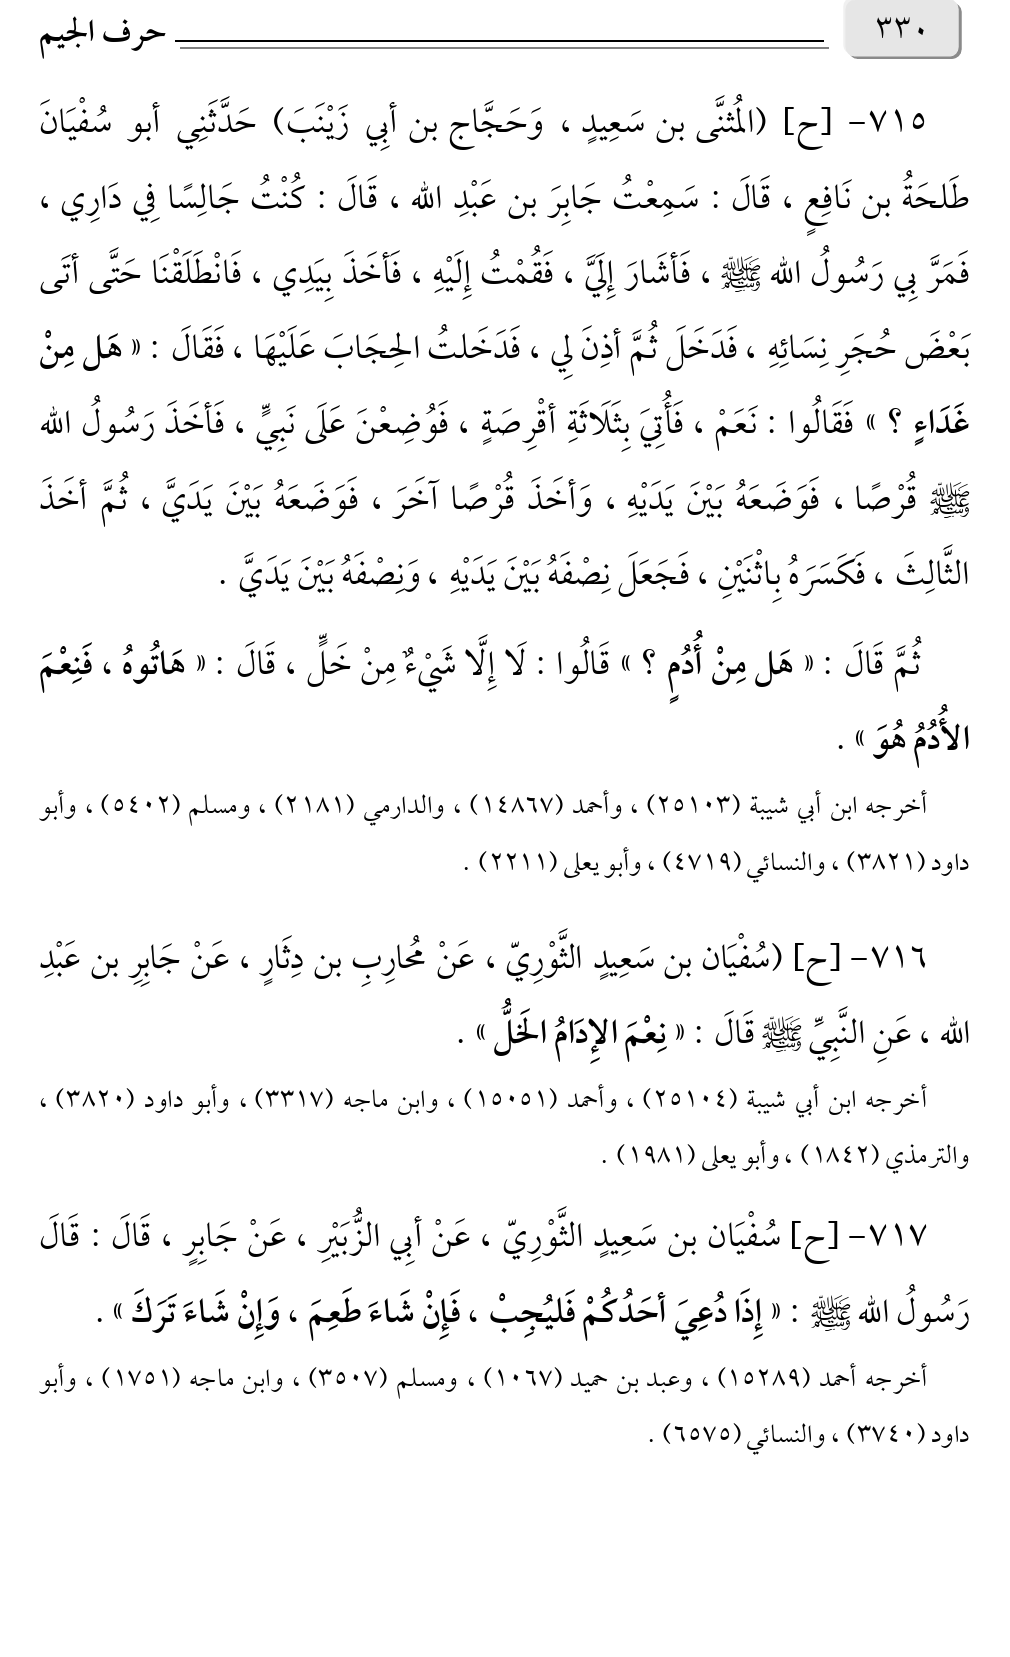 ٣٣٠ حرف الجيم
٧١٥- [ح] (المُثنَّى بن سَعِيدٍ ، وَحَجَّاج بن أبِي زَيْنَبَ) حَدَّثَنِي أبو سُفْيَانَ
طَلحَةُ بن نَافِعٍ ، قَالَ : سَمِعْتُ جَابِرَ بن عَبْدِ الله ، قَالَ : كُنْتُ جَالِسًا فِي دَارِي ،
فَمَرَّ بِي رَسُولُ الله ﷺ ، فَأشَارَ إِلَيَّ ، فَقُمْتُ إِلَيْهِ ، فَأخَذَ بِيَدِي ، فَانْطَلَقْنَا حَتَّى أتَى
بَعْضَ حُجَرِ نِسَائِهِ ، فَدَخَلَ ثُمَّ أذِنَ لِي ، فَدَخَلتُ الحِجَابَ عَلَيْهَا ، فَقَالَ : « هَل مِنْ
غَدَاءٍ ؟ » فَقَالُوا : نَعَمْ ، فَأُتِيَ بِثَلَاثَةِ أقْرِصَةٍ ، فَوُضِعْنَ عَلَى نَبِيٍّ ، فَأخَذَ رَسُولُ الله
ﷺ قُرْصًا ، فَوَضَعَهُ بَيْنَ يَدَيْهِ ، وَأخَذَ قُرْصًا آخَرَ ، فَوَضَعَهُ بَيْنَ يَدَيَّ ، ثُمَّ أخَذَ
الثَّالِثَ ، فَكَسَرَهُ بِاثْنَيْنِ ، فَجَعَلَ نِصْفَهُ بَيْنَ يَدَيْهِ ، وَنِصْفَهُ بَيْنَ يَدَيَّ .
ثُمَّ قَالَ : « هَل مِنْ أُدُمٍ ؟ » قَالُوا : لَا إِلَّا شَيْءٌ مِنْ خَلٍّ ، قَالَ : « هَاتُوهُ ، فَنِعْمَ
الأُدُمُ هُوَ » .
أخرجه ابن أبي شيبة (٢٥١٠٣) ، وأحمد (١٤٨٦٧) ، والدارمي (٢١٨١) ، ومسلم (٥٤٠٢) ، وأبو
داود (٣٨٢١) ، والنسائي (٤٧١٩) ، وأبو يعلى (٢٢١١) .
٧١٦- [ح] (سُفْيَان بن سَعِيدٍ الثَّوْرِيّ ، عَنْ مُحارِبِ بن دِثَارٍ ، عَنْ جَابِرِ بن عَبْدِ
الله ، عَنِ النَّبِيِّ ﷺ قَالَ : « نِعْمَ الإِدَامُ الخَلُّ » .
أخرجه ابن أبي شيبة (٢٥١٠٤) ، وأحمد (١٥٠٥١) ، وابن ماجه (٣٣١٧) ، وأبو داود (٣٨٢٠) ،
والترمذي (١٨٤٢) ، وأبو يعلى (١٩٨١) .
٧١٧- [ح] سُفْيَان بن سَعِيدٍ الثَّوْرِيّ ، عَنْ أبِي الزُّبَيْرِ ، عَنْ جَابِرٍ ، قَالَ : قَالَ
رَسُولُ الله ﷺ : « إِذَا دُعِيَ أحَدُكُمْ فَليُجِبْ ، فَإِنْ شَاءَ طَعِمَ ، وَإِنْ شَاءَ تَرَكَ » .
أخرجه أحمد (١٥٢٨٩) ، وعبد بن حميد (١٠٦٧) ، ومسلم (٣٥٠٧) ، وابن ماجه (١٧٥١) ، وأبو
داود (٣٧٤٠) ، والنسائي (٦٥٧٥) .